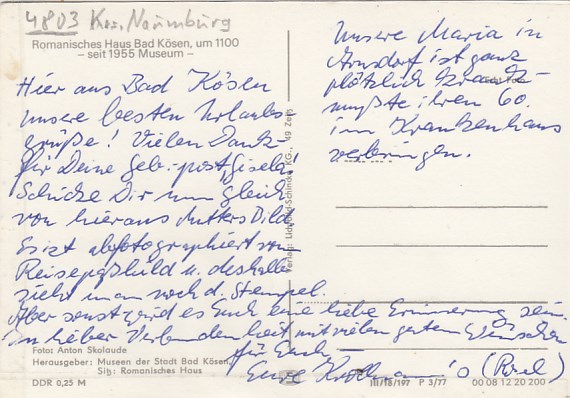 4803 Krs. Naumburg
Romanisches Haus Bad Kösen, um 1100
– seit 1955 Museum –
Hier aus Bad Kösen
unsere besten Urlaubs-
grüße! Vielen Dank
für Deine Geb.-postgiselei!
Schicke Dir nun gleich
von hieraus Mutters Bild.
Es ist abfotographiert vom
Reisepaßbild u. deshalb
zieht man noch d. Stempel.
Aber sonst wird es Euch eine liebe Erinnerung sein.
In lieber Verbundenheit mit vielen guten Wünschen
für Euch –
Eure
(Rosel)
Unsere Maria in
Arnsdorf ist ganz
plötzlich krank –
mußte ihren 60.
im Krankenhaus
verbringen.
Verlag: Lichtbild-Schincke KG., 49 Zeitz
Foto: Anton Skolaude
Herausgeber: Museen der Stadt Bad Kösen,
Sitz: Romanisches Haus
DDR 0,25 M
III/18/197 P 3/77 00 08 12 20 200